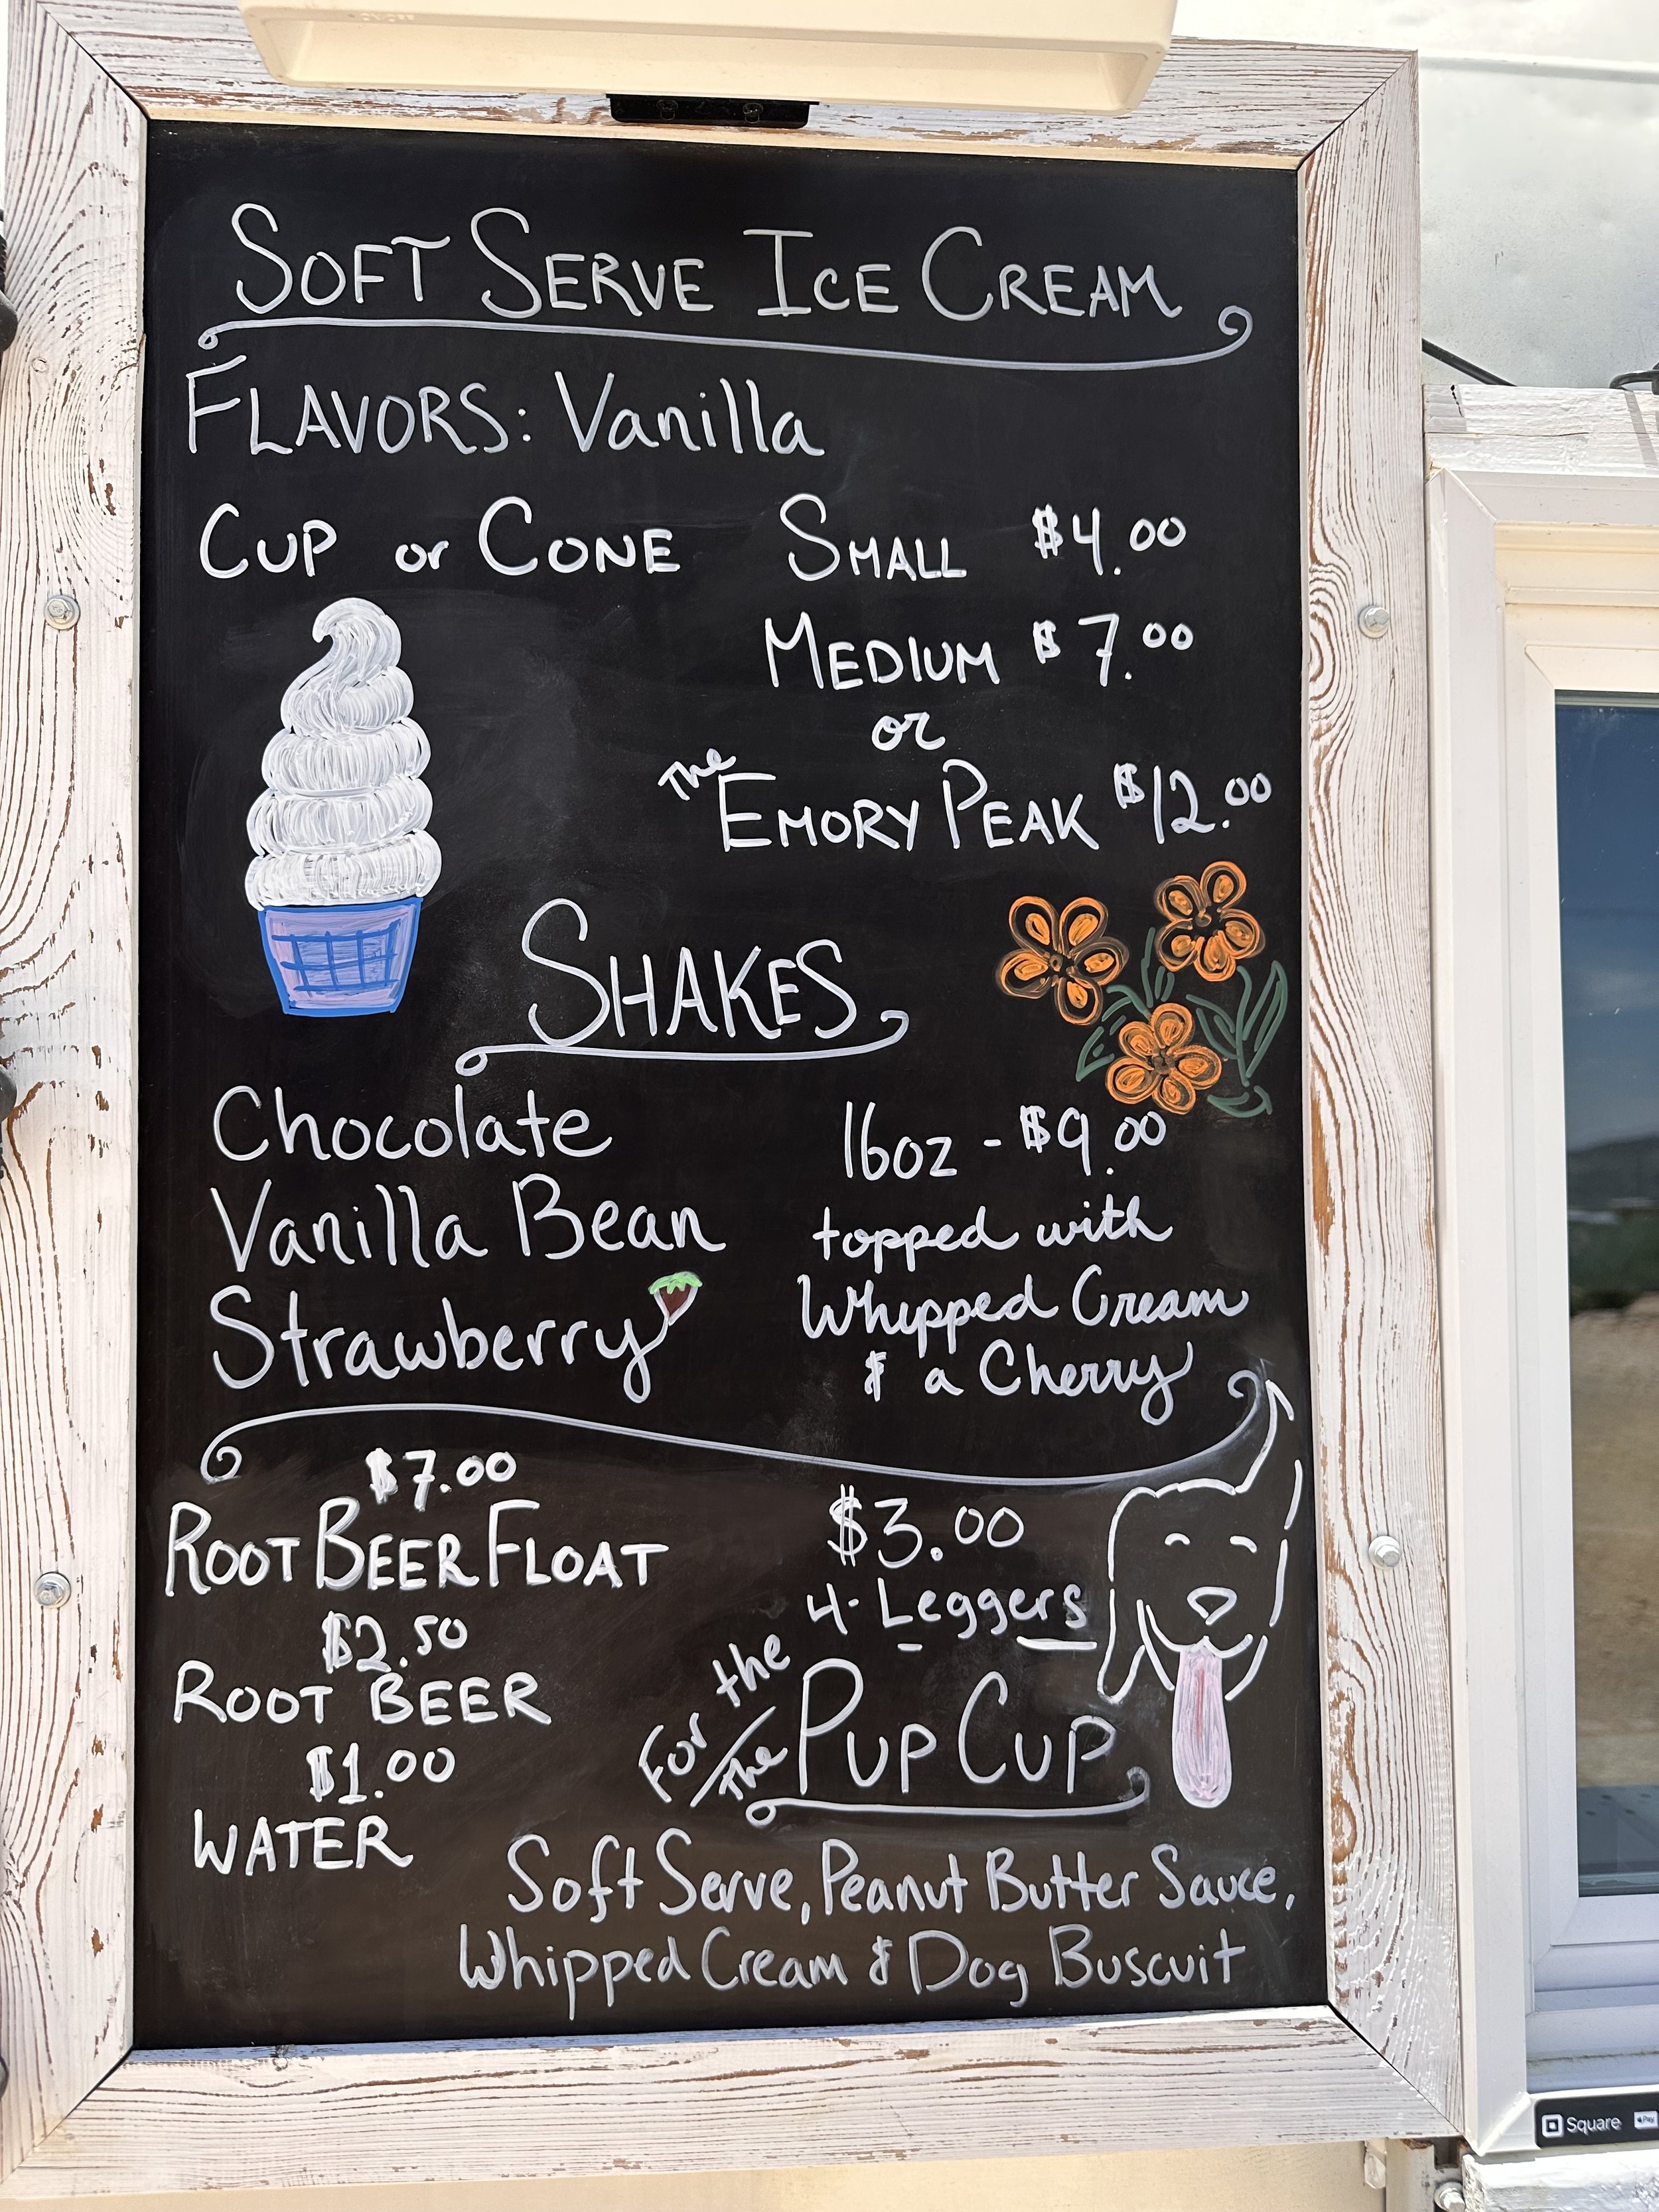 SOFT SERVE ICE CREAM
FLAVORS: Vanilla
CUP or CONE SMALL $4.00
MEDIUM $7.00
or
The EMORY PEAK $12.00
SHAKES
Chocolate
Vanilla Bean
Strawberry
16oz - $9.00
topped with
Whipped Cream
& a Cherry
$7.00
ROOT BEER FLOAT
$2.50
ROOT BEER
$1.00
WATER
$3.00
For the 4-Leggers
The PUP CUP
Soft Serve, Peanut Butter Sauce,
Whipped Cream & Dog Buscuit
Square Pay